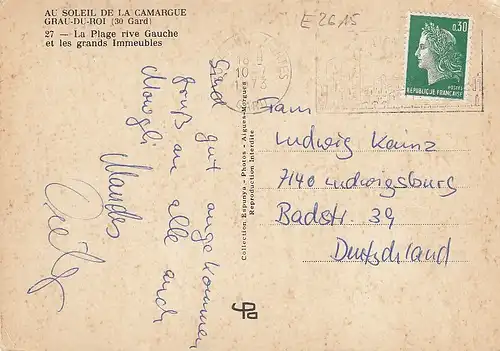 AU SOLEIL DE LA CAMARGUE
GRAU-DU-ROI (30 Gard)
27 — La Plage rive Gauche
et les grands Immeubles
E 26,15
0,30
POSTES
REPUBLIQUE FRANÇAISE
Sind gut angekommen
Gruß an alle auch
Mowgli
Collection Espunya - Photos - Aigues-Mortes
Reproduction Interdite
Ludwig Kainz
7140 Ludwigsburg
Badstr. 39
Deutschland